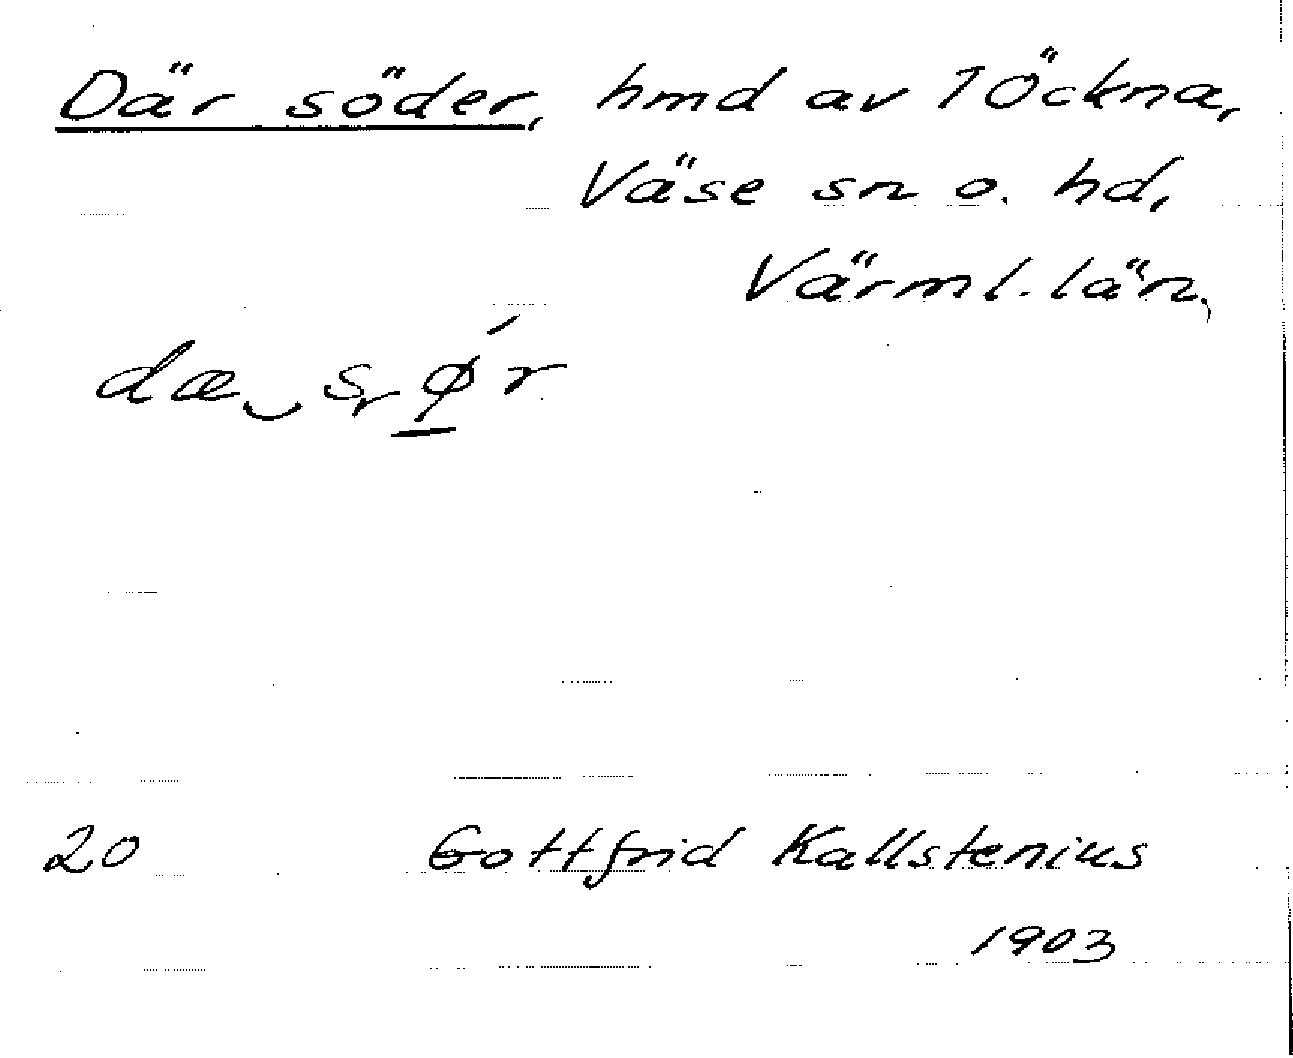 Där söder, hmd av 1 Öckna,
Väse sn o. hd,
Värml. län.
dæ‿ sr ǿ r
20 Gottfrid Kallstenius
1903